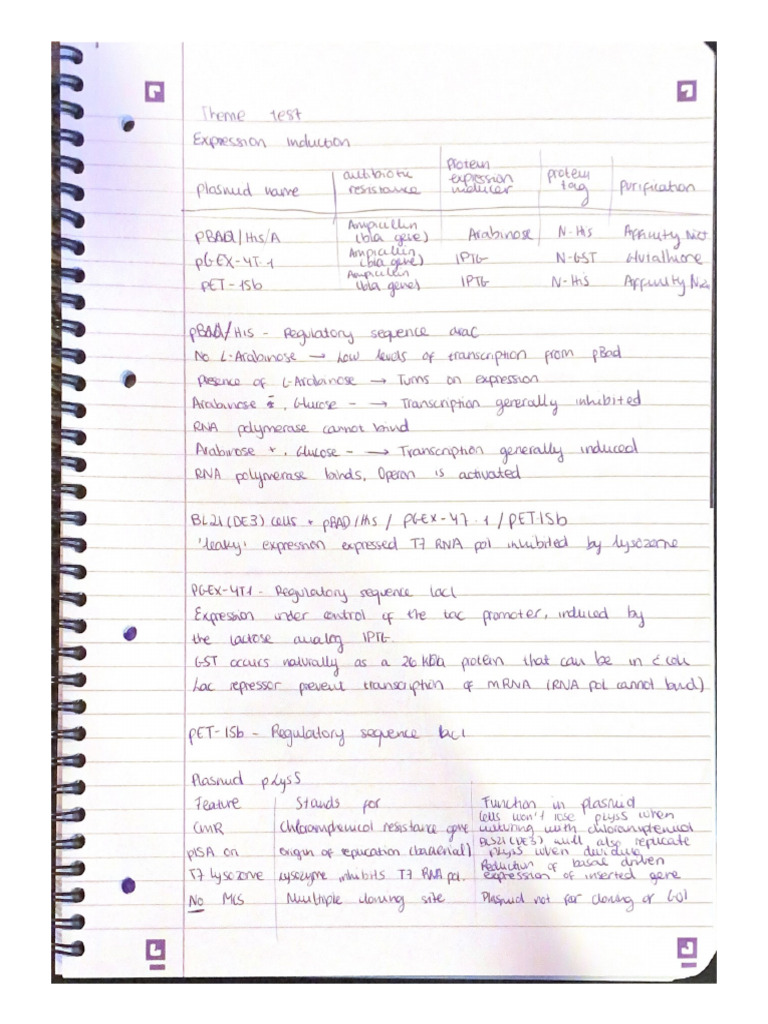 Theme test
Expression induction
plasmid name | antibiotic resistance | protein expression inducer | protein tag | purification
pBAD/His/A | Ampicillin (bla gene) | Arabinose | N-His | Affinity
pGEX-4T-1 | Ampicillin (bla gene) | IPTG | N-GST | Glutathione
pET-15b | Ampicillin (bla gene) | IPTG | N-His | Affinity
pBAD/His - Regulatory sequence araC
No L-Arabinose → Low levels of transcription from pBad
Presence of L-Arabinose → Turns on expression
Arabinose -, Glucose - → Transcription generally inhibited
RNA polymerase cannot bind
Arabinose +, Glucose - → Transcription generally induced
RNA polymerase binds, Operon is activated
BL21(DE3) cells + pBAD/His / pGEX-4T-1 / pET-15b
'leaky' expression expressed T7 RNA pol inhibited by lysozome
PGEX-4T1 - Regulatory sequence lacI
Expression under control of the tac promoter, induced by
the lactose analog IPTG.
GST occurs naturally as a 26 kDa protein that can be in E coli
Lac repressor prevent transcription of mRNA (RNA pol cannot bind)
pET-15b - Regulatory sequence lacI
Plasmid pLysS
Feature | Stands for | Function in plasmid
CMR | Chloramphenicol resistance gene | Cells won't lose pLysS when maturing with chloramphenicol
p15A ori | Origin of replication (bacterial) | BL21(DE3) will also replicate pLysS when dividing
T7 lysozome | Lysozyme inhibits T7 RNA pol. | Reduction of basal driven expression of inserted gene
No MCS | Multiple cloning site | Plasmid not for cloning of GOI